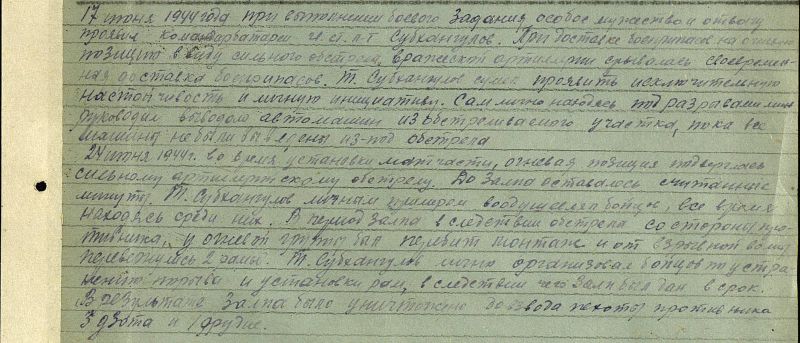 17 июня 1944 года при выполнении боевого задания особое мужество и отвагу
проявил командир батареи гв. ст. л-т Субхангулов. При доставке боеприпасов на огневую
позицию в виду сильного обстрела, вражеской артиллерии срывалась своевремен-
ная доставка боеприпасов. Т. Субхангулов сумел проявить исключительную
настойчивость и личную инициативу. Сам лично находясь под разрывами мин
руководил выводом автомашин из обстреливаемого участка, пока все
машины не были выведены из-под обстрела
24 июня 1944 г. во время установки матчасти, огневая позиция подверглась
сильному артиллерийскому обстрелу. До залпа оставалось считанные
минуты. Т. Субхангулов личным примером воодушевлял бойцов, все время
находясь среди них. В период залпа в следствии обстрела со стороны про-
тивника, у огневой был перебит монтаж и от взрывной волны
перевернулись 2 рамы. Т. Субхангулов лично организовал бойцов по устра-
нению и установки рам, в следствии чего залп был дан в срок.
В результате залпа было уничтожено до взвода пехоты противника
3 дзота и 1 орудие.